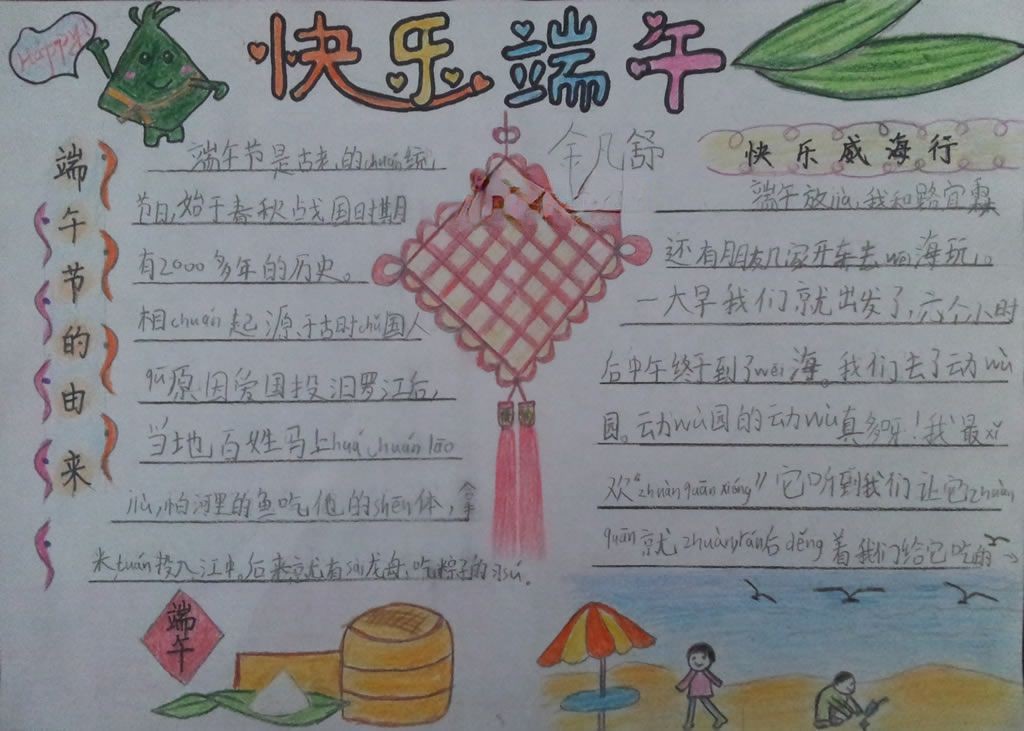 Happy!
快乐端午
端午节的由来
端午节是古老的chuán统
节日,始于春秋战国时期
有2000多年的历史。
相chuán起源于古时chǔ国人
qū原因爱国投汨罗江后,
当地百姓马上huá chuán lāo
jiù,怕河里的鱼吃他的shēn体,拿
米tuán投入江中。后来就有sài龙舟,吃粽子的习sú。
金凡舒
快乐威海行
端午放jià,我和路宜霖
还有朋友几家开车去wēi海玩。
一大早我们就出发了,六个小时
后中午终于到了wēi海。我们去了动wù
园。动wù园的动wù真多呀!我最xǐ
欢“zhuàn quān xióng”它听到我们让它zhuàn
quān就zhuàn,rán后děng着我们给它吃的。
端午